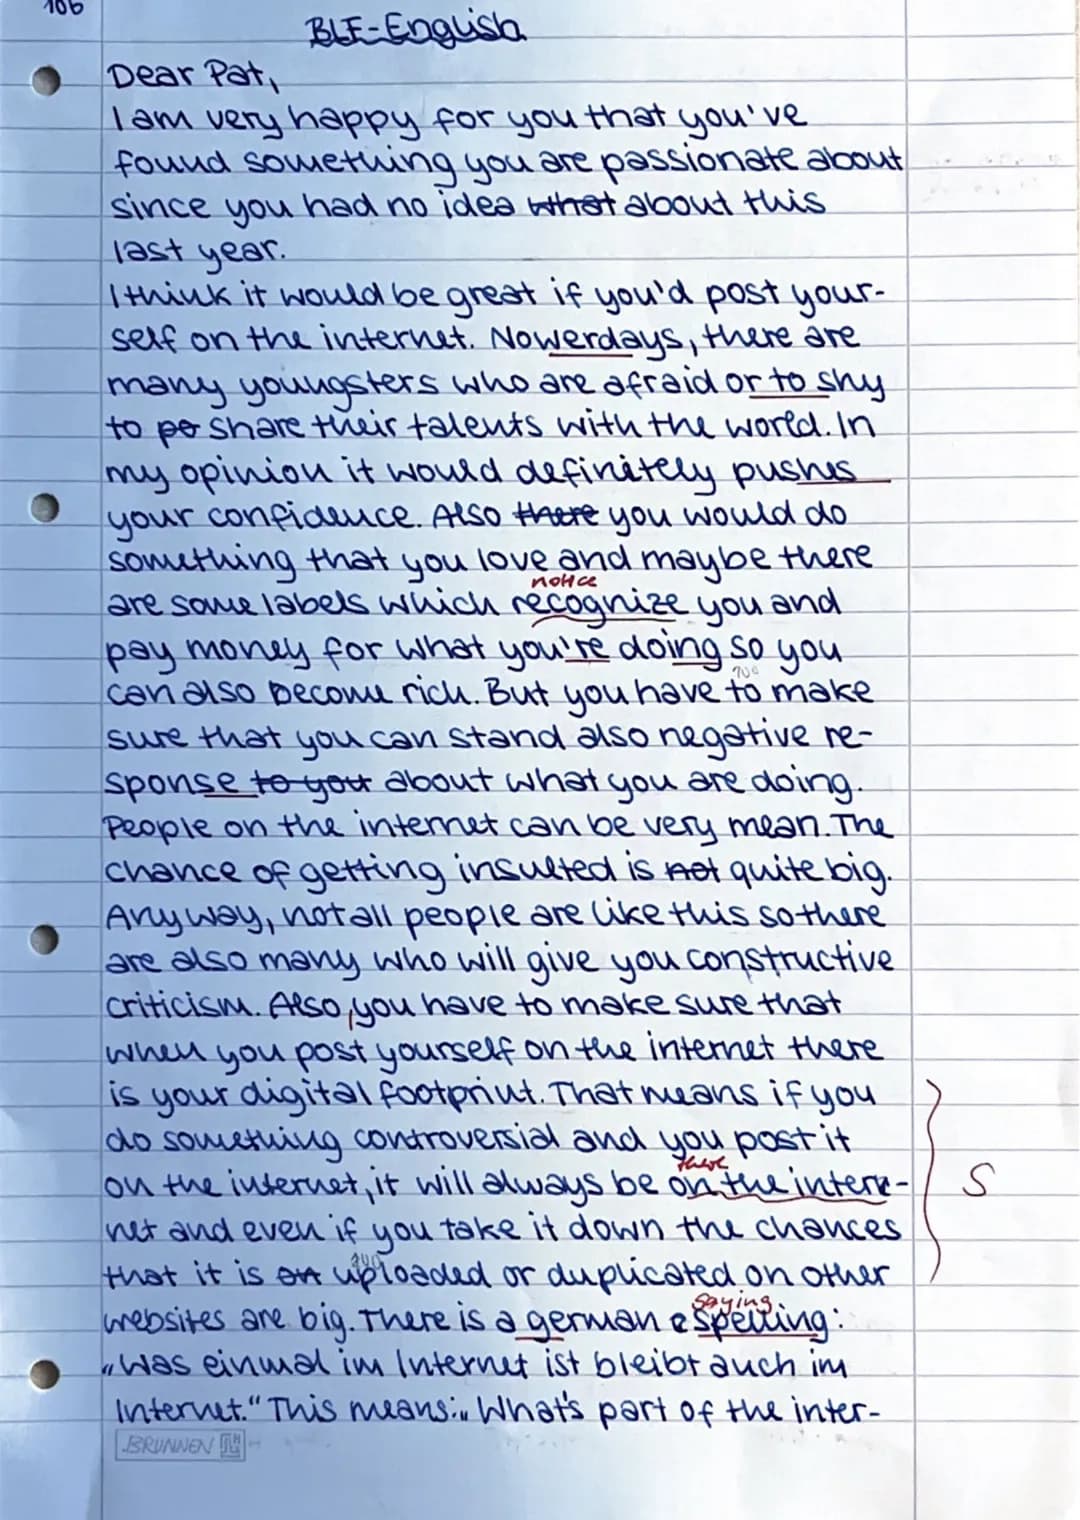 106
BLE-English
Dear Pat,
I am very happy for you that you've
found something you are passionate about
since you had no idea what about this
last year.
I think it would be great if you'd post your-
self on the internet. Nowerdays, there are
many youngsters who are afraid or to shy
to po share their talents with the world. In
my opinion it would definitely pushes
your confidence. Also there you would do
something that you love and maybe there
notice
are some labels which recognize you and
pay money for what you're doing so you
200
can also become rich. But you have to make
sure that you can stand also negative re-
sponse to you about what you are doing.
People on the internet can be very mean. The
chance of getting insulted is not quite big.
Anyway, not all people are like this so there
are also many who will give you constructive
criticism. Also, you have to make sure that
when you post yourself on the internet there
is your digital footprint. That means if you
do something controversial and you post it
there
on the internet, it will always be on the inter-
S
net and even if you take it down the chances
that it is on uploaded or duplicated on other
saying
websites are big. There is a german spelling:
„Was einmal im Internet ist bleibt auch im
Internet." This means: „What's part of the inter-
BRUNNEN